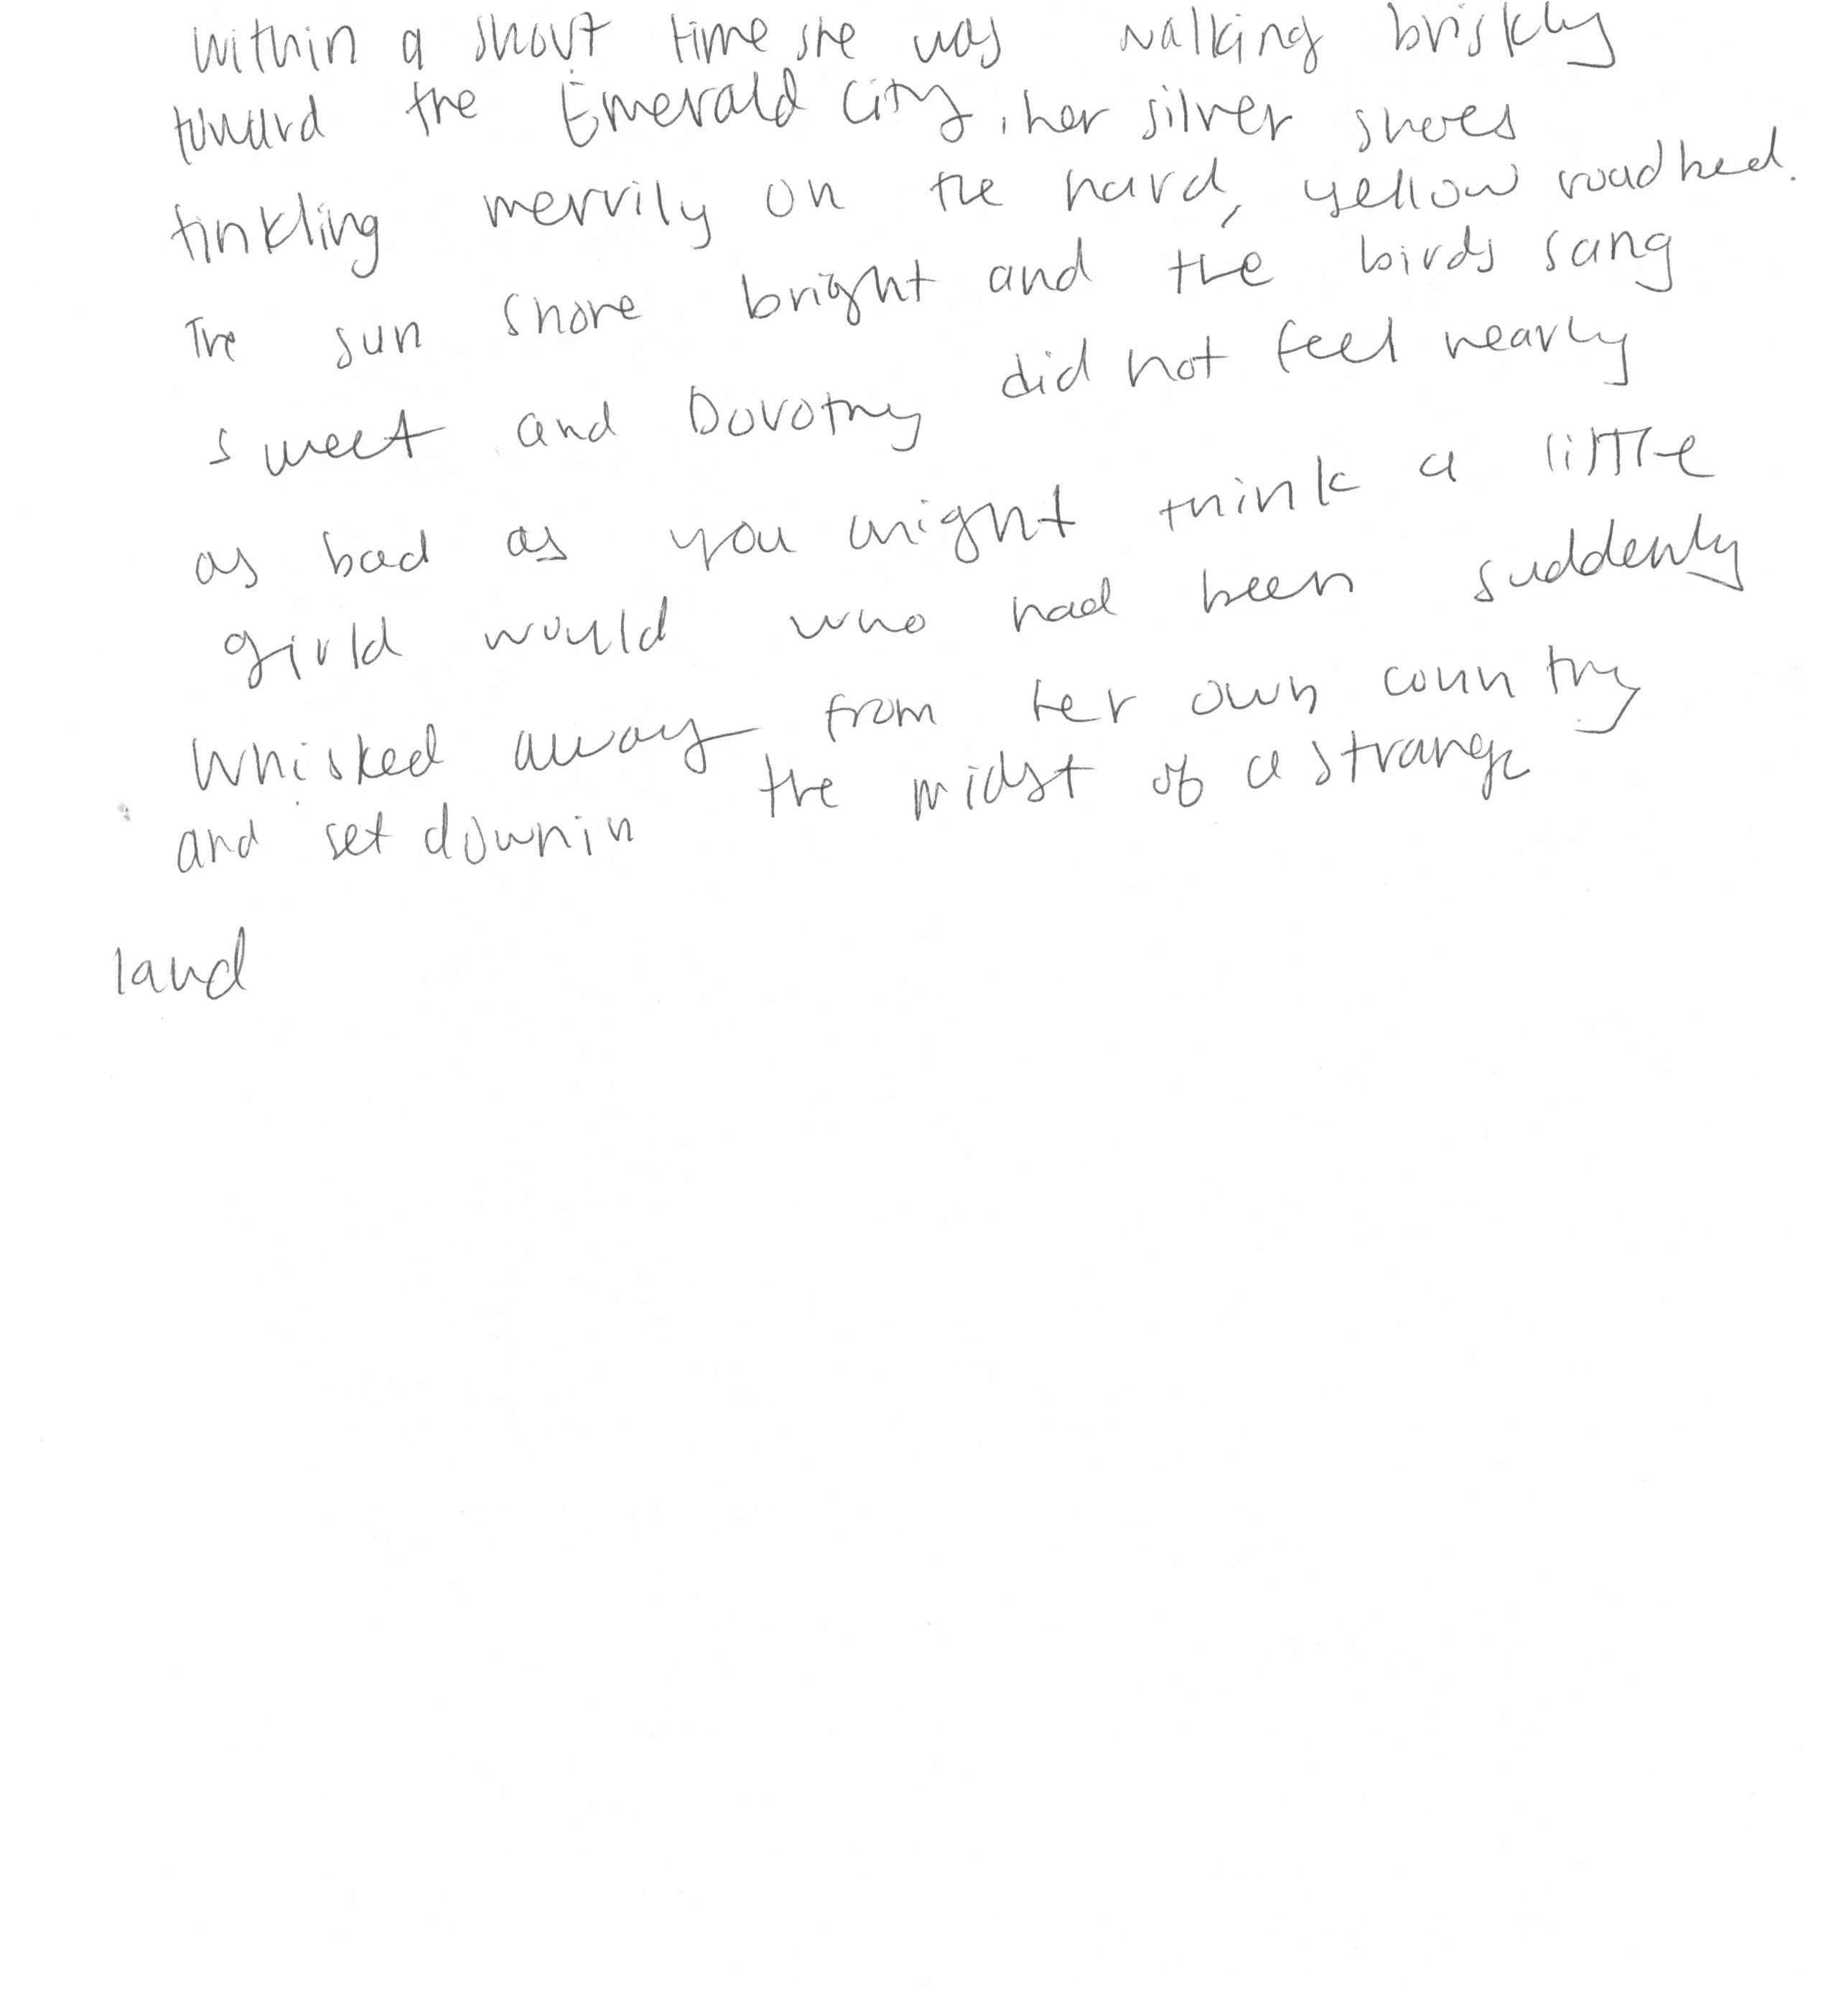 Within a short time she was walking briskly
toward the Emerald City, her silver shoes
tinkling merrily on the hard, yellow roadbed.
The sun shone bright and the birds sang
sweet and Dorothy did not feel nearly
as bad as you might think a little
girld would who had been suddenly
whisked away from her own country
and set downin the midst of a strange
land